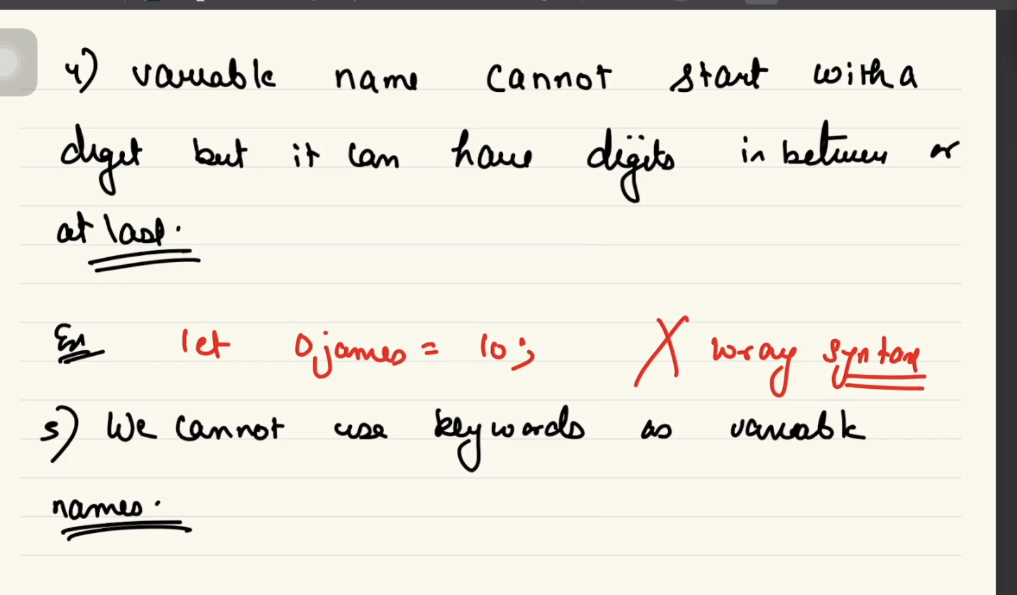 4) variable name cannot start with a
digit but it can have digits in between or
at last.
Ex let 0james = 10; X wrong syntax
5) We cannot use keywords as variable
names.